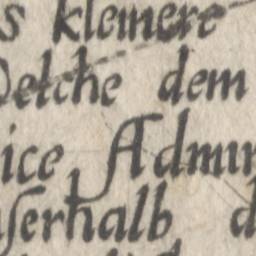 s kleinere
Welche dem
ice Admir
ſerhalb d